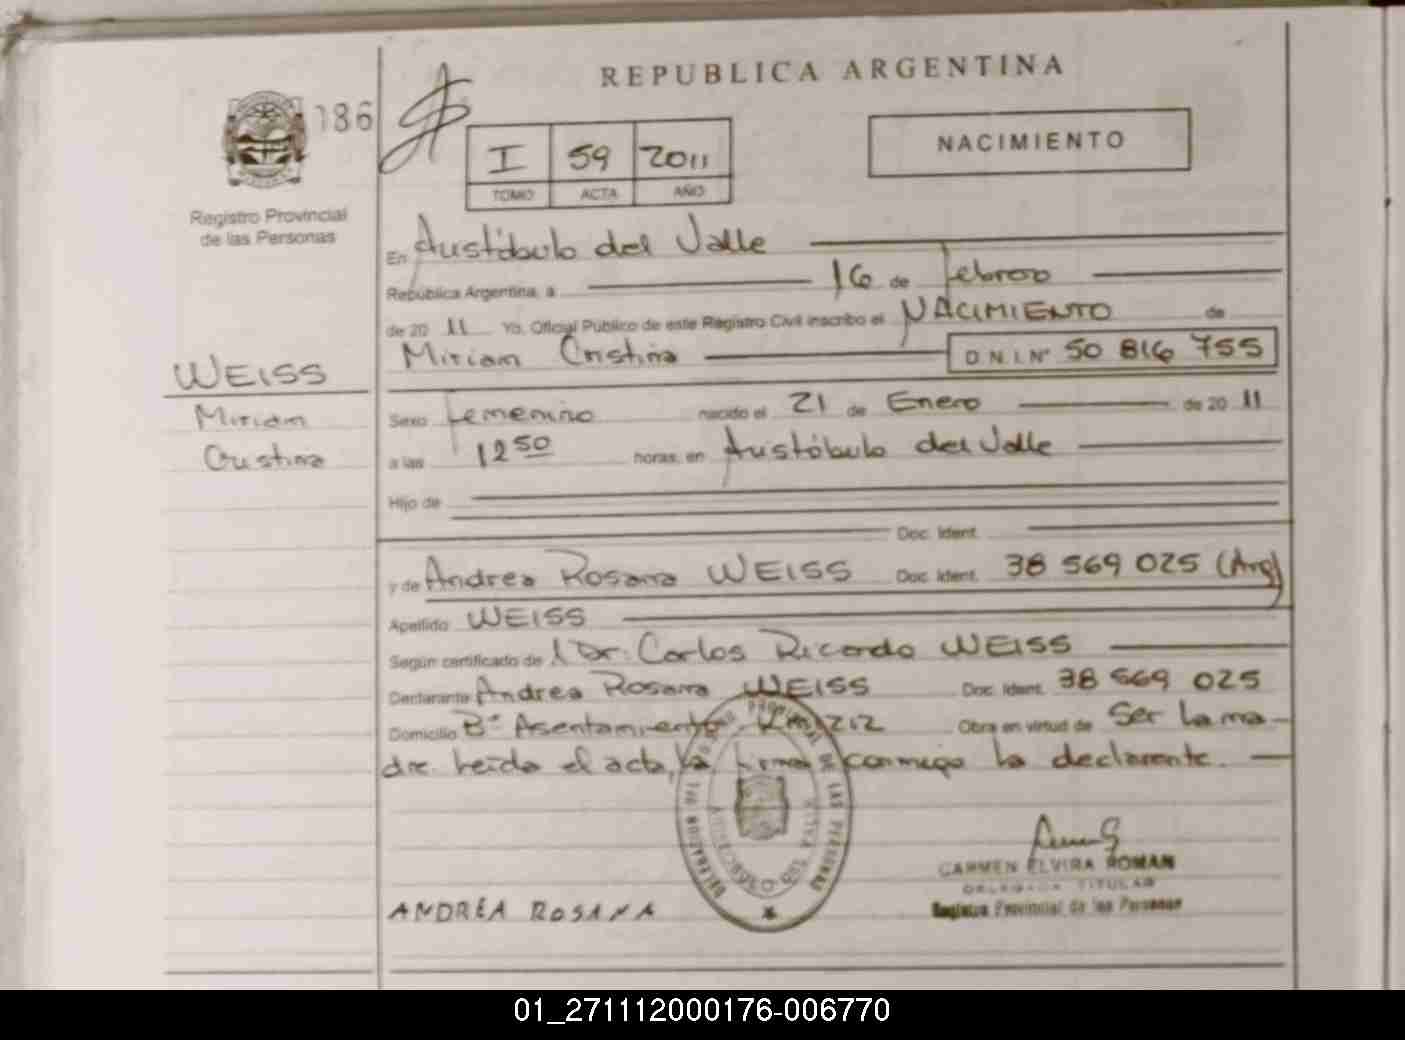 REPUBLICA ARGENTINA
186
I 59 2011
TOMO ACTA AÑO
NACIMIENTO
Registro Provincial
de las Personas
En Aristóbulo del Valle
República Argentina, a 16 de febrero
de 20 11 Yo, Oficial Público de este Registro Civil inscribo el NACIMIENTO de
Miriam Cristina D.N.I. Nº 50 816 755
WEISS
Miriam
Cristina
Sexo femenino nacido el 21 de Enero de 20 11
a las 12 50 horas, en Aristóbulo del Valle
Hijo de
Doc. Ident.
y de Andrea Rosana WEISS Doc. Ident. 38 569 025 (Arg)
Apellido WEISS
Según certificado de Dr. Carlos Ricardo WEISS
Declarante Andrea Rosana WEISS Doc. Ident. 38 569 025
Domicilio Bº Asentamiento Obra en virtud de Ser la ma-
dre. Leída el acta, la firma conmigo la declarante.
DELEGACION REGISTRO PROVINCIAL DE LAS PERSONAS
ARISTOBULO DEL VALLE
CARMEN ELVIRA ROMAN
DELEGADA TITULAR
Registro Provincial de las Personas
ANDREA ROSANA
01_271112000176-006770